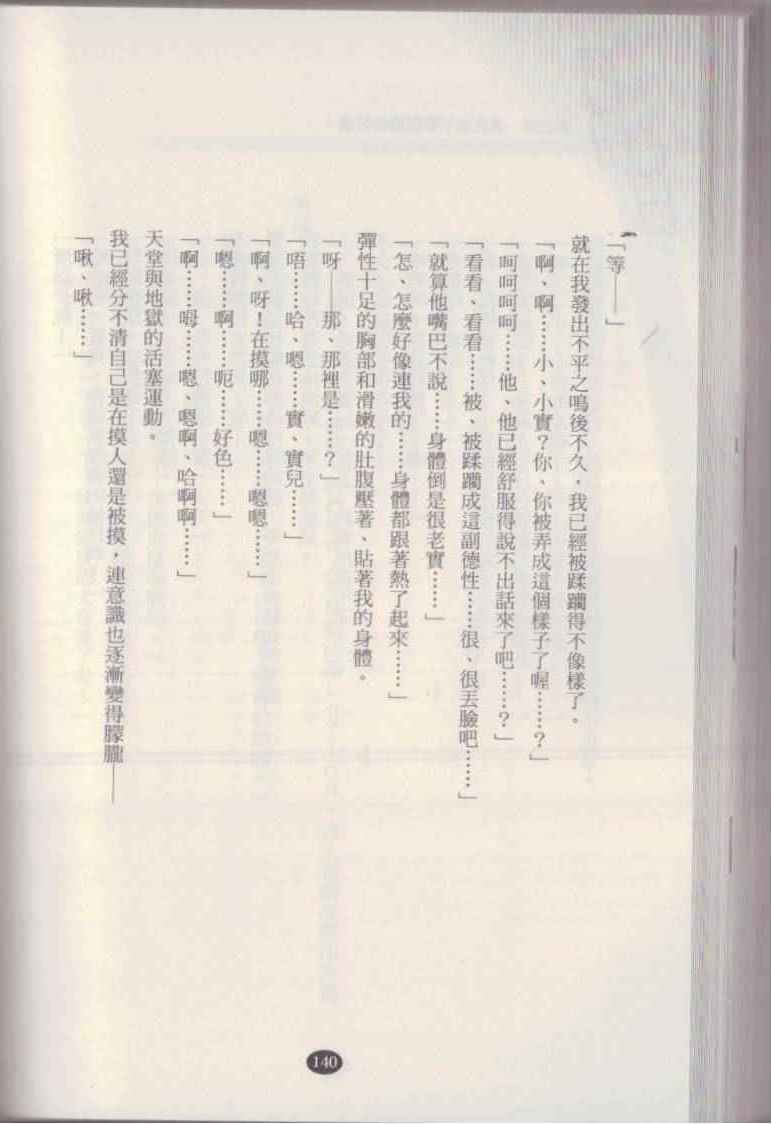 「等——」
就在我發出不平之鳴後不久，我已經被蹂躪得不像樣了。
「啊、啊……小、小實？你、你被弄成這個樣子了喔……？」
「呵呵呵呵……他、他已經舒服得說不出話來了吧……？」
「看看、看看……被、被蹂躪成這副德性……很、很丟臉吧……」
「就算他嘴巴不說……身體倒是很老實……」
「怎、怎麼好像連我的……身體都跟著熱了起來……」
彈性十足的胸部和滑嫩的肚腹壓著、貼著我的身體。
「呀——那、那裡是……？」
「唔……哈、嗯……實、實兒……」
「啊、呀！在摸哪……嗯……嗯嗯……」
「嗯……啊……呃……好色……」
「啊……嗚……嗯、嗯啊、哈啊啊……」
天堂與地獄的活塞運動。
我已經分不清自己是在摸人還是被摸，連意識也逐漸變得朦朧——
「啾、啾……」
140